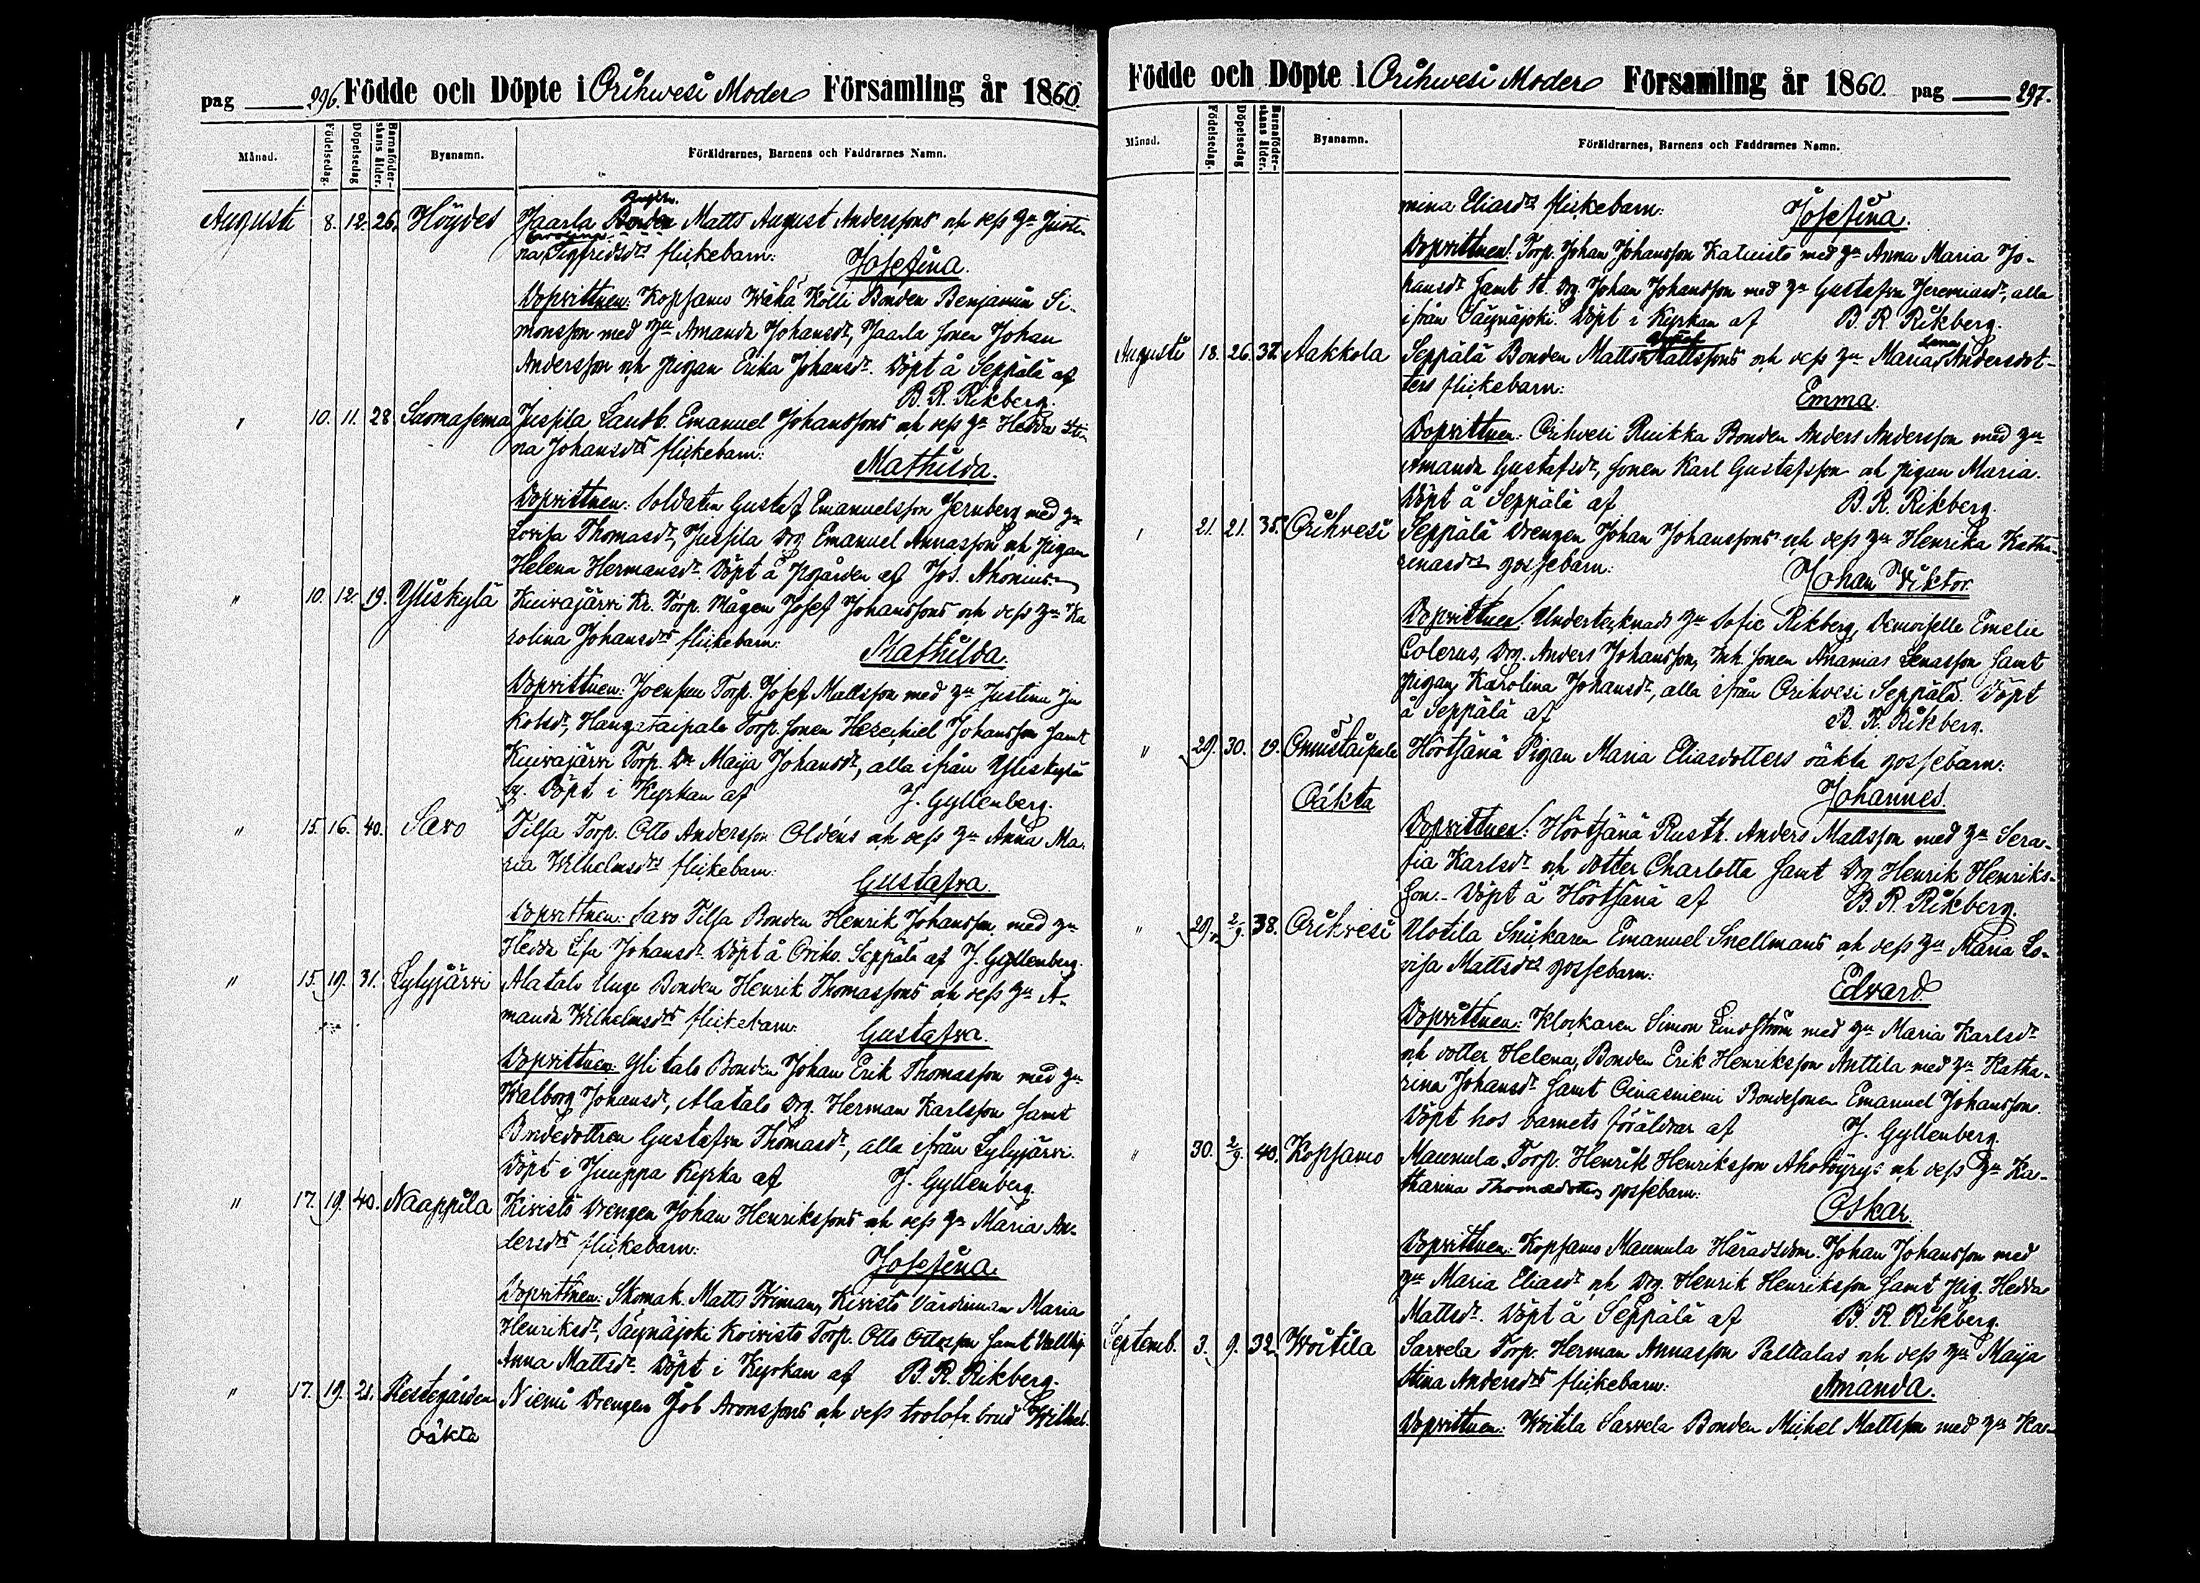 pag 296. Födde och Döpte i Orihwesi Moder Församling år 1860.
Månad. Födelsedag. Döpelsedag Barnaföderskans ålder. Byanamn. Föräldrarnes, Barnens och Faddrarnes Namn.
August 8. 12. 26. Höydes Jaarla Bonden Matts August Anderssons och dess hu Justi-
na Sigfridsdrs flickebarn: Josefina.
Dopvittnen: Kopsamo Wähä Kölli Bonden Benjamin Si-
monsson med hu Amanda Johansdr, Jaarla sonen Johan
Andersson och pigan Erika Johansdr. Döpt å Seppälä af
B. R. Rikberg.
" 10. 11. 28. Suomasema Jussila Landb. Emanuel Johanssons och dess hu Hedda Sti-
na Johansdrs flickebarn: Mathilda.
Dopvittnen: Soldaten Gustaf Emanuelsson Jernberg med hu
Lovisa Thomasdr, Jussila Drg Emanuel Annasson och pigan
Helena Hermansdr. Döpt å Pgården af Jos. Ahonius.
" 10. 12. 19. Yliskylä Kuivajärvi Kr. Torp. Mågen Josef Johanssons och dess hu Ka
rolina Johansdrs flickebarn: Mathilda.
Dopvittnen: Joensuu Torp. Josef Mattsson med hu Justina Ja
kobsdr, Hangastaipale Torp. sonen Hezechiel Johansson samt
Kuivajärvi Torp. Dr Maija Johansdr, alla ifrån Yliskylä
by. Döpt i Kyrkan af J. Gyllenberg.
" 15. 16. 40. Savo Tilsa Torp. Otto Andersson Oldéns och dess hu Anna Ma-
ria Wilhelmsdrs flickebarn: Gustafva
Dopvittnen: Savo Tilsa Bonden Henrik Johansson med hu
Hedda Lisa Johansdr. Döpt å Orihv. Seppälä af J. Gyllenberg.
" 15. 19. 31. Lylyjärvi Alatalo Unge Bonden Henrik Thomassons och dess hu A-
manda Wilhelmsdrs flickebarn: Gustafva.
Dopvittnen: Ylitalo Bonden Johan Erik Thomasson med hu
Walborg Johansdr, Alatalo Drg. Herman Karlsson samt
Bondedottren Gustafva Thomasdr, alla ifrån Lylyjärvi.
Döpt i Juuppa Kyrka af J. Gyllenberg.
" 17. 19. 40. Naappila Kivistö Drengen Johan Henrikssons och dess hu Maria An-
dersdrs flickebarn: Josefina.
Dopvittnen: Skomak. Matts Friman, Kivistö Värdinnan Maria
Henriksdr, Säynäjoki Koivisto Torp. Otto Ottosson samt
Anna Mattsdr. Döpt i Kyrkan af B. R. Rikberg.
" 17. 19. 21. Prestegården Niemi Drengen Job Aronssons och dess trolofv. brud Wilhel-
Oäkta
Födde och Döpte i Orihwesi Moder Församling år 1860. pag 297.
Månad. Födelsedag. Döpelsedag Barnaföderskans ålder. Byanamn. Föräldrarnes, Barnens och Faddrarnes Namn.
mina Eliasdrs flickebarn: Josefina.
Dopvittnen: Torp. Johan Johansson Katuisto med hu Anna Maria Jo-
hansdr samt St. Drg. Johan Johansson med hu Gustafva Jeremiasdr, alla
ifrån Säynäjoki. Döpt i Kyrkan af B. R. Rikberg.
Augusti 18. 26. 37. Aakkola Seppälä Bonden Matts Mattssons och dess hu Maria Lena Andersdot-
ters flickebarn: Emma.
Dopvittnen: Orihvesi Ruikka Bonden Anders Andersson med hu
Amanda Gustafsdr, sonen Karl Gustafsson och pigan Maria.
Döpt å Seppälä af B. R. Rikberg.
" 21. 21. 35. Orihvesi Seppälä Drengen Johan Johanssons och dess hu Henrika Katha-
rinasdrs gossebarn: Johan Viktor.
Dopvittnen: Undertecknads hu Sofie Rikberg, Demoiselle Emelie
Colerus, Drg. Anders Johansson, Inh. sonen Ananias Lenasson samt
pigan Karolina Johansdr, alla ifrån Orihvesi Seppälä. Döpt
å Seppälä af B. R. Rikberg.
" 29. 30. 19. Onnistaipale Hörtsänä Pigan Maria Eliasdotters oäkta gossebarn:
Oäkta Johannes.
Dopvittnen: Hörtsänä Rusth. Anders Mattsson med hu Sera-
fia Karlsdr och dotter Charlotta samt Drg Henrik Henriks-
son. Döpt å Hörtsänä af B. R. Rikberg.
" 29. 2/9. 38. Orihvesi Uotila Snickaren Emanuel Snellmans och dess hu Maria Lo-
visa Mattsdrs gossebarn: Edvard
Dopvittnen: Klockaren Simon Lindström med hu Maria Karlsdr
och dotter Helena, Bonden Erik Henriksson Anttila med hu Katha-
rina Johansdr samt Oinasniemi Bondesonen Emanuel Johansson.
Döpt hos barnets föräldrar af J. Gyllenberg.
" 30. 2/9. 40. Kopsamo Maunula Torp. Henrik Henriksson Ahotöyrys och dess hu Ka-
tharina Thomædotters gossebarn: Oskar.
Dopvittnen: Kopsamo Maunula Häradsdom. Johan Johansson med
hu Maria Eliasdr och Drg. Henrik Henriksson samt pig. Hedda
Mattsdr. Döpt å Seppälä af B. R. Rikberg.
Septemb. 3. 9. 32. Woitila Sarvela Torp. Herman Annasson Paltalas och dess hu Maija
Stina Andersdrs flickebarn: Amanda.
Dopvittnen: Woitila Sarvela Bonden Michel Mattsson med hu Ka-